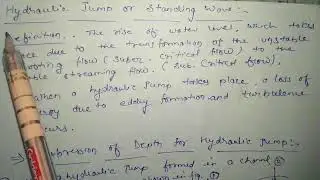 Hydraulic Jump or Standing Wave:-
Definition.. The rise of water level, which takes
place due to the transformation of the unstable
shooting flow (super critical flow) to the
stable streaming flow. (sub critical flow).
When a hydraulic Jump takes place, a loss of
energy due to eddy formation and turbulence
occurs.
Expression of Depth for Hydraulic Jump:-
hydraulic Jump formed in a channel
shown in fig.